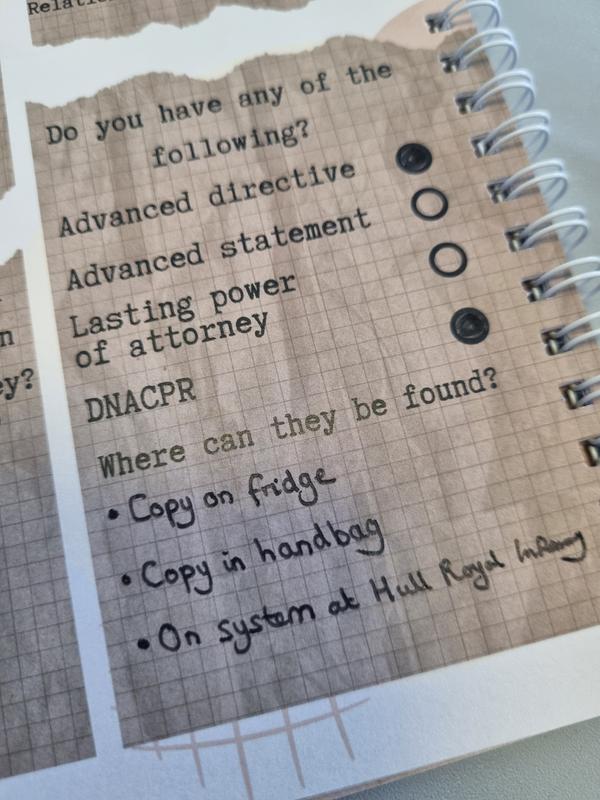 Relati
Do you have any of the
following?
Advanced directive
Advanced statement
Lasting power
of attorney
DNACPR
Where can they be found?
• Copy on fridge
• Copy in handbag
• On system at Hull Royal Infirmary
n
ey?